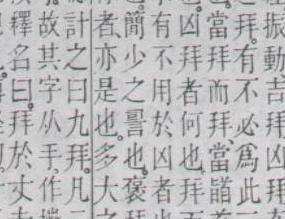 振動吉拜凶
拜有不必爲此拜
當拜而拜當
凶拜者何也拜
有不用於凶者
簡少之也褒
者亦是也多大
計之曰九拜凡
故其字从手作
釋名曰拜於丈